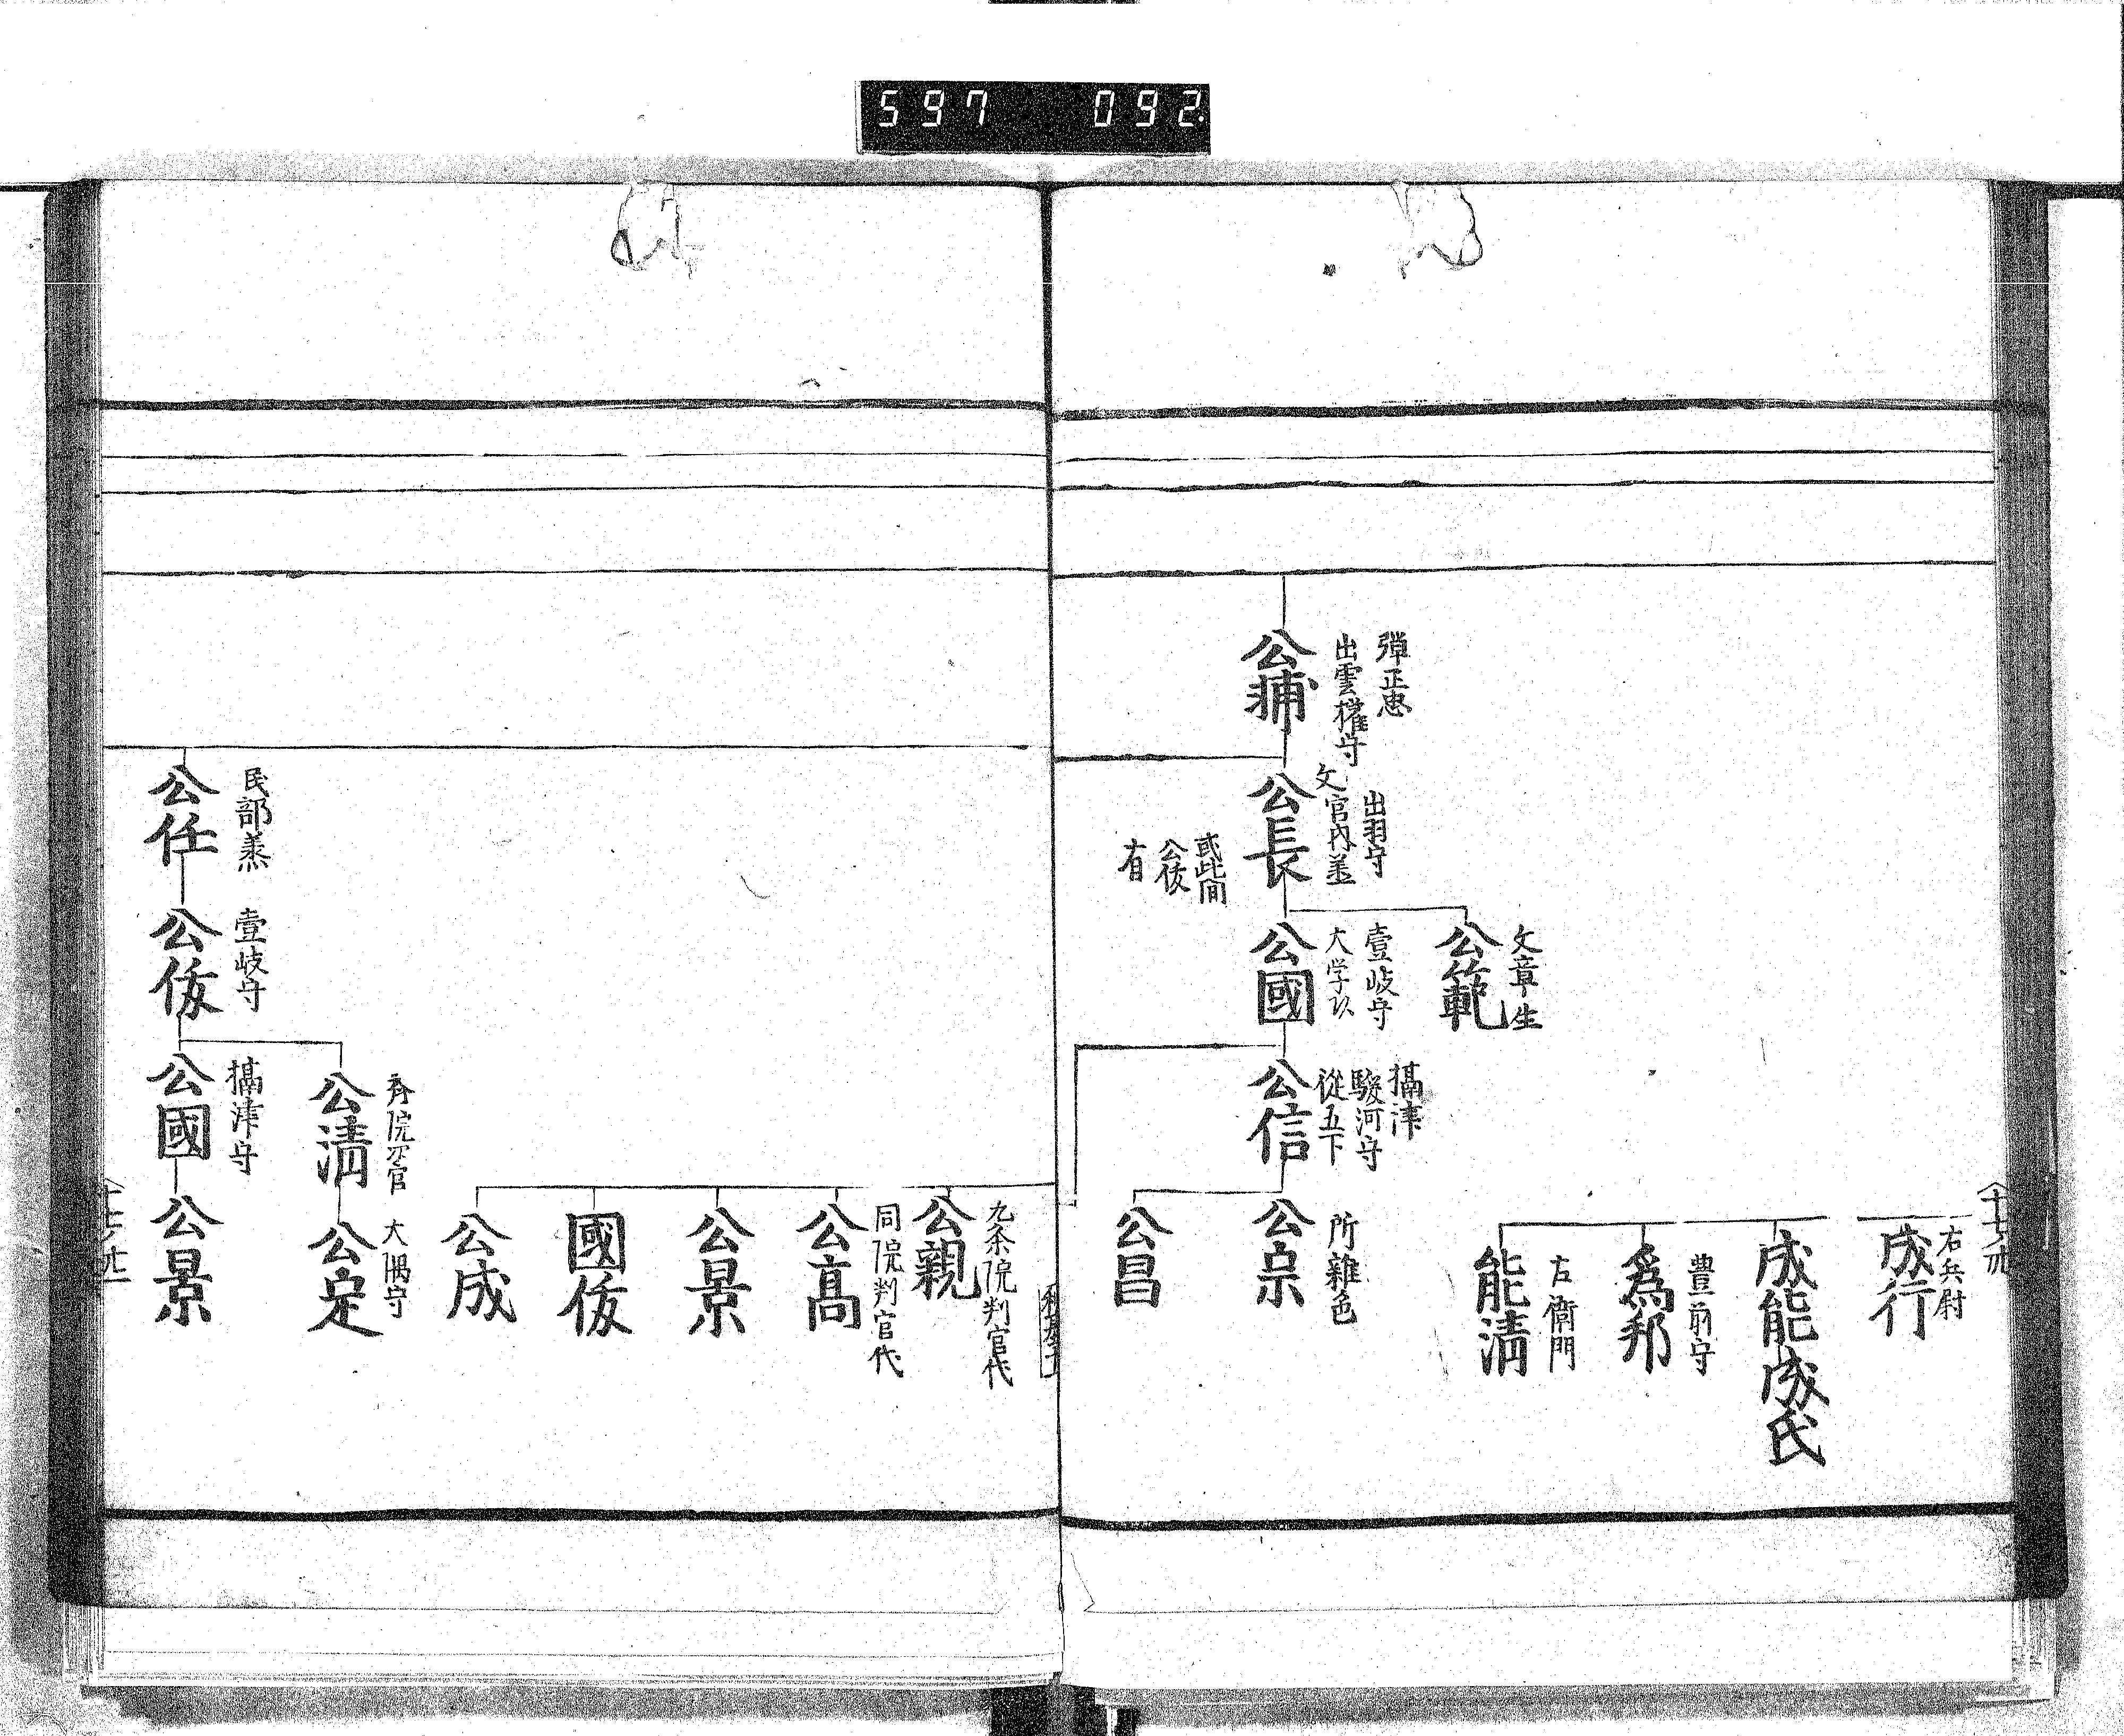 597 092
右兵尉
成行
成能
成氏
豊前守
為邦
左衛門
能清
弾正忠
出雲権守
公輔
出羽守
文官内丞
公長
或此間
公俊
有
文章生
公範
壹岐守
大学助
公國
攝津
駿河守
從五下
公信
所雜色
公宗
公昌
九条院判官代
公親
同院判官代
公高
公景
國俊
公成
民部丞
公任
壹岐守
公俊
斉院次官
公清
大隅守
公定
攝津守
公國
公景